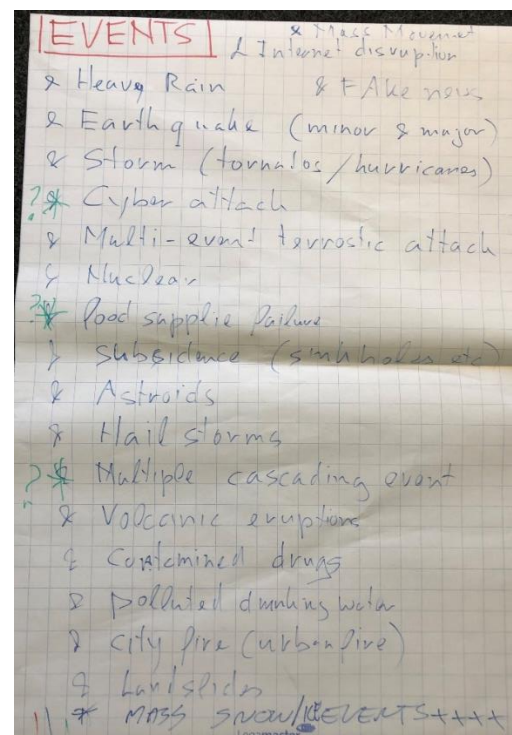 EVENTS
& Mass Movement
& Internet disruption
& Heavy Rain & FAke news
& Earthquake (minor & major)
& Storm (tornatos/hurricanes)
?* Cyber attack
& Multi-event terrostic attack
& Nuclear
?* food supplie failure
& subsidence (sinkholes etc)
& Astroids
& Hail storms
?* Multiple cascading event
& Volccinic eruptions
& Contamined drugs
& polluted drinking water
& city fire (urban fire)
& Landslides
* MASS SNOW/ICE EVENTS++++